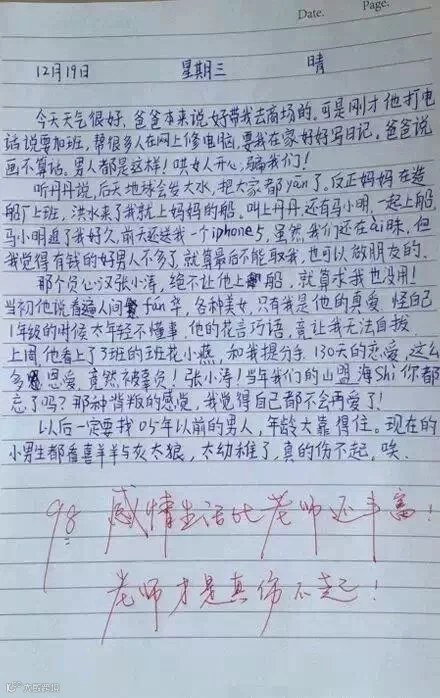 Date. Page.
12月19日 星期三 晴
今天天气很好,爸爸本来说好带我去商场的。可是刚才他打电
话说要加班,帮很多人在网上修电脑,要我在家好好写日记。爸爸说
画不算话。男人都是这样!哄女人开心,骗我们!
听丹丹说,后天地球会发大水,把大家都yān了。反正妈妈在造
船厂上班,洪水来了我就上妈妈的船。叫上丹丹,还有马小明,一起上船,
马小明追了我好久,前天还送我一个iphone5,虽然我们还在ai昧,但
我觉得有钱的好男人不多了,就算最后不能取我,也可以做朋友的。
那个负心汉张小涛,绝不让他上船,就算求我也没用!
当初他说看遍人间fán华,各种美女,只有我是他的真爱.怪自己
1年级的时候太年轻不懂事,他的花言巧语,竟让我无法自拔.
上周他看上了3班的班花小燕,和我提分手.130天的恋爱,这么
多恩爱,竟然被辜负!张小涛!当年我们的山盟海Shi你都
忘了吗?那种背叛的感觉,我觉得自己都不会再爱了!
以后一定要找05年以前的男人,年龄大靠得住。现在的
小男生都看喜羊羊与灰太狼,太幼稚了,真的伤不起,唉.
98 感情生活比老师还丰富!
老师才是真伤不起!